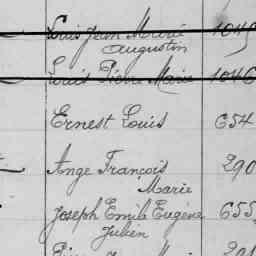 Louis Jean Marie 1045
Augustin
Louis Pierre Marie 1046
Ernest Louis 654
Ange François 290
Marie
Joseph Emile Eugène 655
Julien